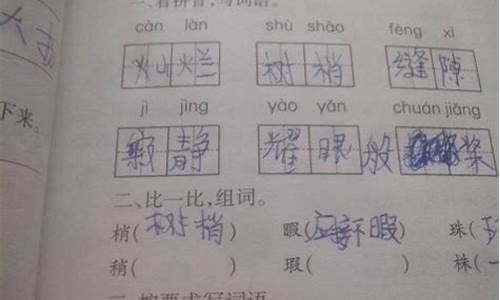 一、看拼音,写词语。
càn làn shù shāo fèng xì
灿烂 树梢 缝隙
jì jìng yào yǎn chuán jiǎng
下来。
寂静 耀眼 般桨
二、比一比,组词。
梢(树梢) 暇(应接不暇) 珠(
稍( ) 瑕( ) 株(
三、按要求写词语